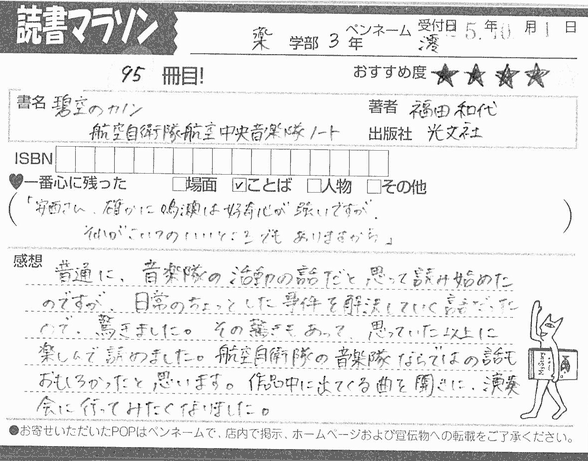 読書マラソン
薬 学部 3 年 ペンネーム 澪 受付日 5年10月1日
95 冊目!
おすすめ度 ★★★★
書名 碧空のカノン
航空自衛隊航空中央音楽隊ノート
著者 福田和代
出版社 光文社
ISBN
♥一番心に残った □場面 ☑ことば □人物 □その他
(「安西さん、確かに鳴瀬は好奇心が強いですが、
それがこいつのいいところでもありますから」)
感想
普通に、音楽隊の活動の話だと思って読み始めた
のですが、日常のちょっとした事件を解決していく話だった
ので、驚きました。その驚きもあって、思っていた以上に
楽しんで読めました。航空自衛隊の音楽隊ならではの話も
おもしろかったと思います。作品中に出てくる曲を聞きに、演奏
会に行ってみたくなりました。
●お寄せいただいたPOPはペンネームで、店内で掲示、ホームページおよび宣伝物への転載をご了承ください。